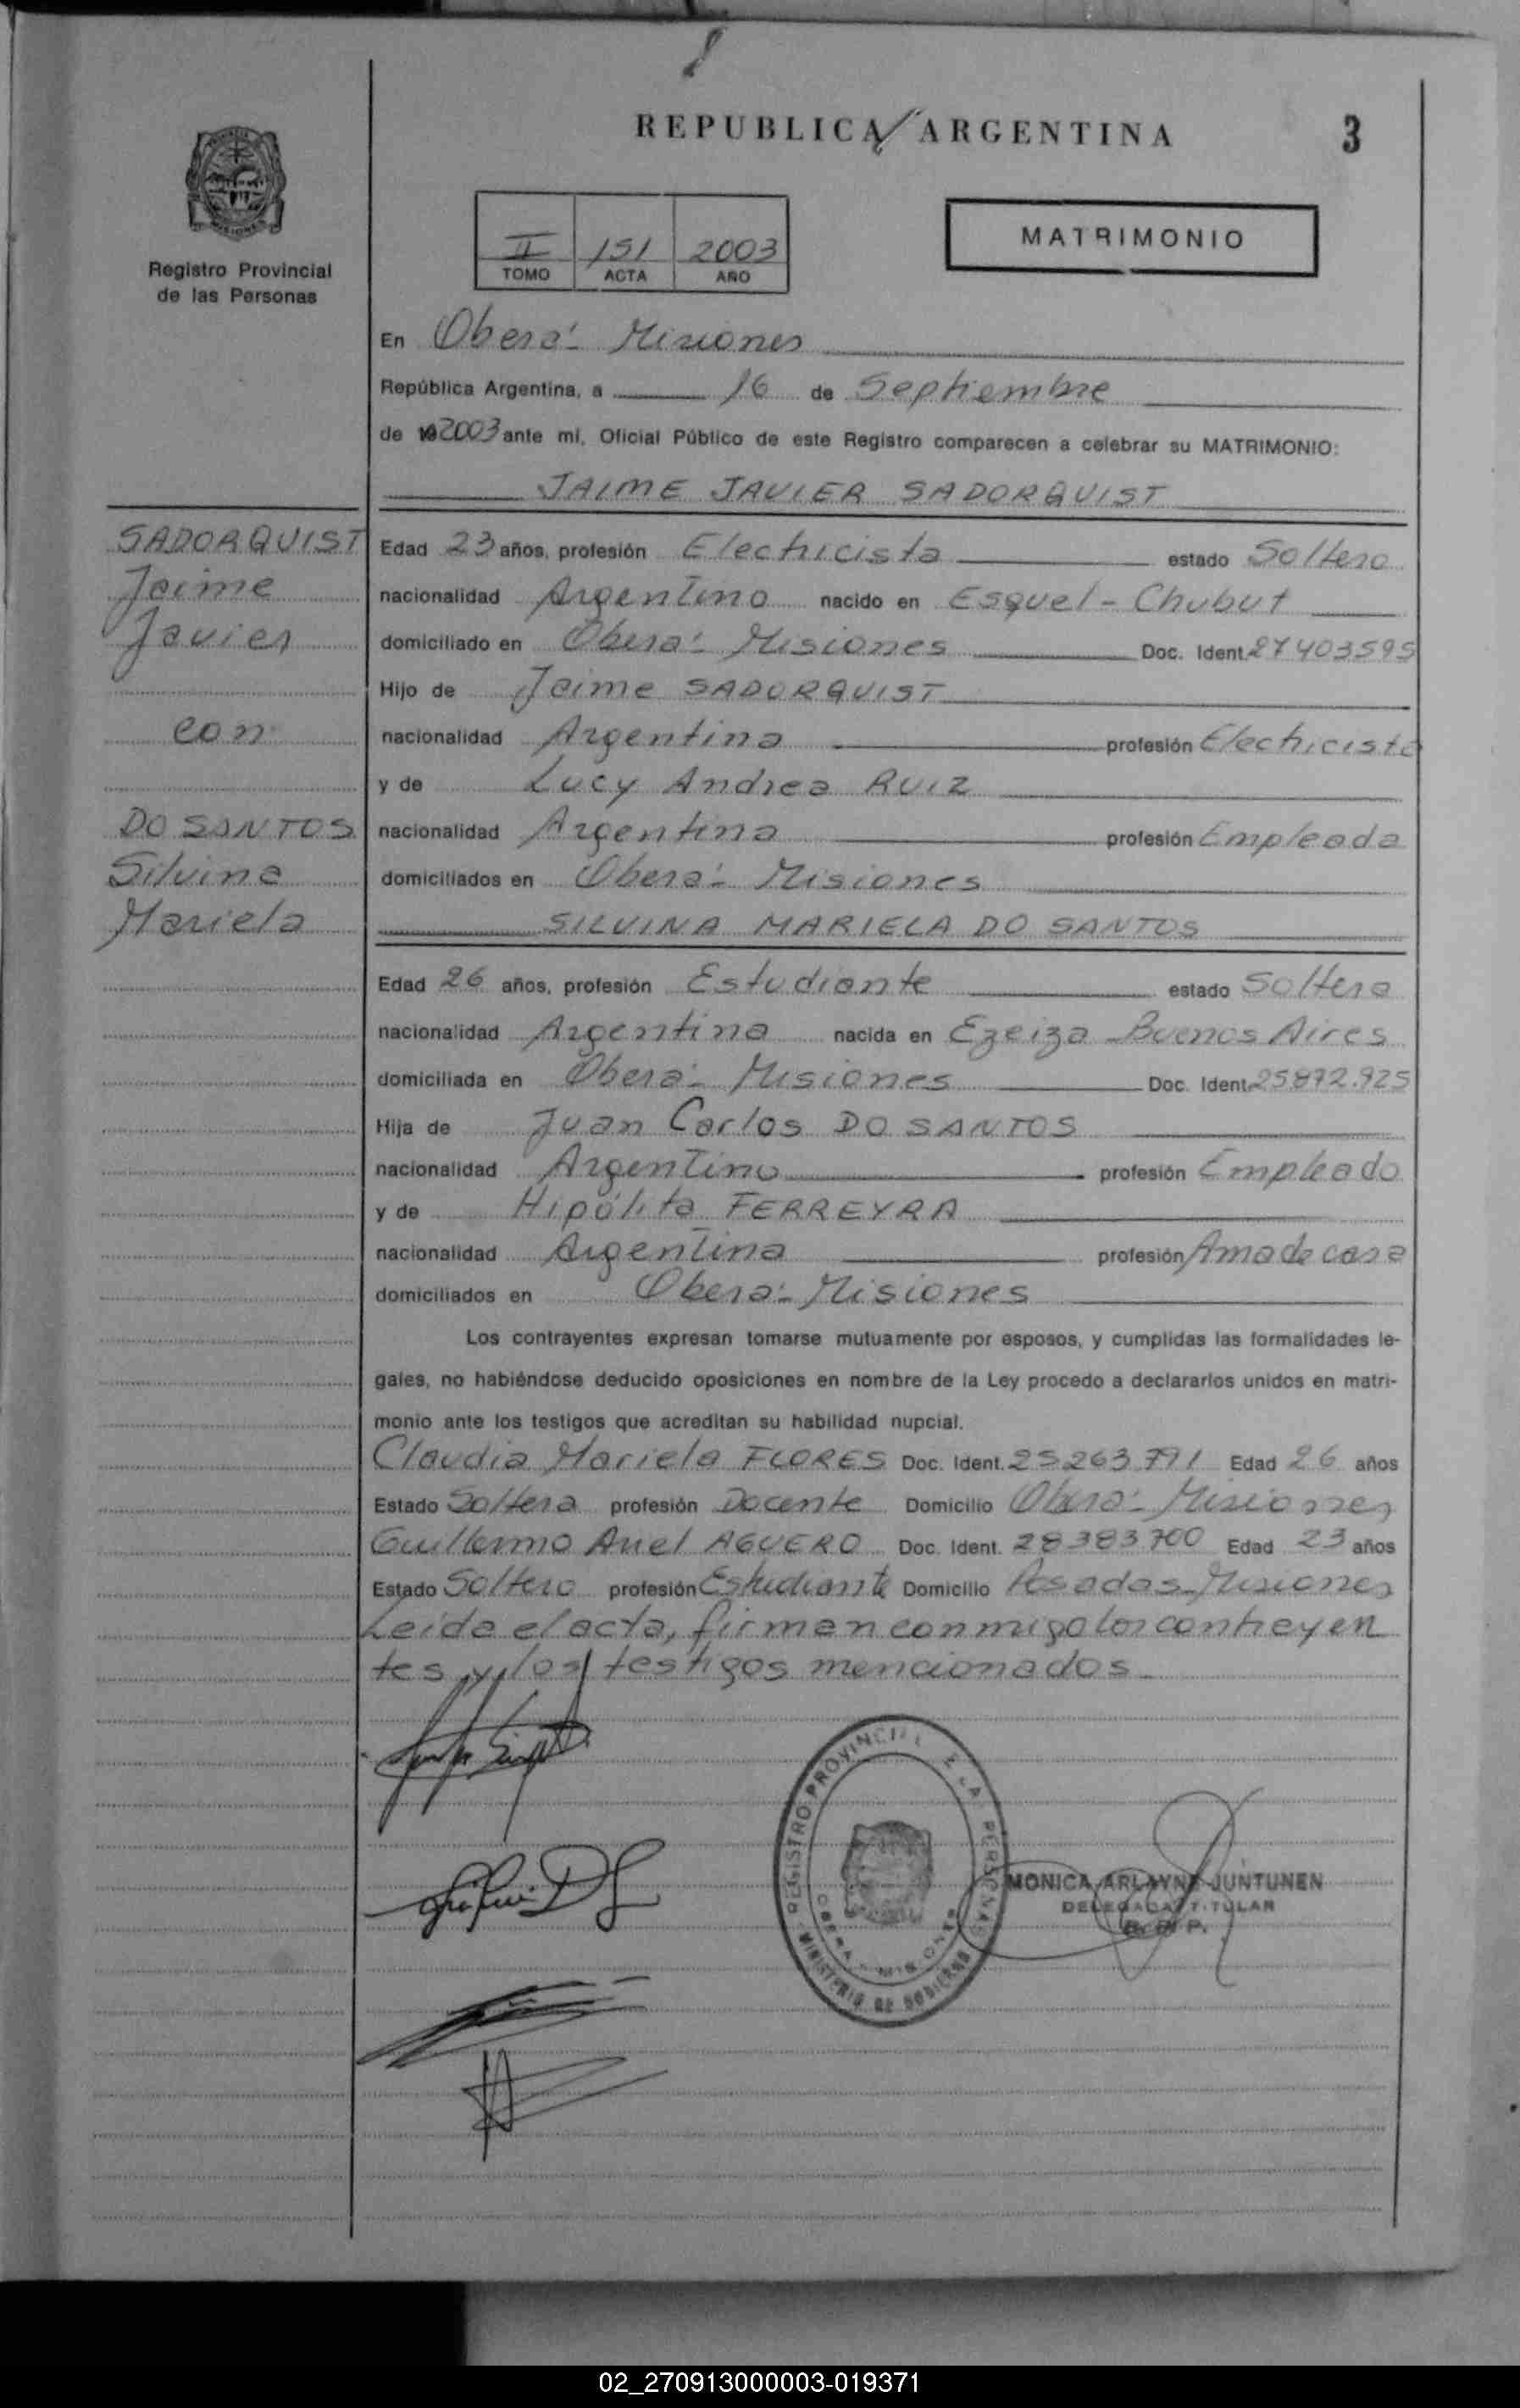 REPUBLICA ARGENTINA
3
Registro Provincial
de las Personas
II 151 2003
TOMO ACTA AÑO
MATRIMONIO
En Oberá - Misiones
República Argentina, a 16 de Septiembre
de 19 2003 ante mí, Oficial Público de este Registro comparecen a celebrar su MATRIMONIO:
JAIME JAVIER SADORQUIST
SADORQUIST
Jaime
Javier
con
DO SANTOS
Silvina
Mariela
Edad 23 años, profesión Electricista estado Soltero
nacionalidad Argentino nacido en Esquel - Chubut
domiciliado en Oberá - Misiones Doc. Ident. 27403595
Hijo de Jaime SADORQUIST
nacionalidad Argentina profesión Electricista
y de Lucy Andrea RUIZ
nacionalidad Argentina profesión Empleada
domiciliados en Oberá - Misiones
SILVINA MARIELA DO SANTOS
Edad 26 años, profesión Estudiante estado Soltera
nacionalidad Argentina nacida en Ezeiza - Buenos Aires
domiciliada en Oberá - Misiones Doc. Ident. 25.872.925
Hija de Juan Carlos DO SANTOS
nacionalidad Argentino profesión Empleado
y de Hipólita FERREYRA
nacionalidad Argentina profesión Ama de casa
domiciliados en Oberá - Misiones
Los contrayentes expresan tomarse mutuamente por esposos, y cumplidas las formalidades le-
gales, no habiéndose deducido oposiciones en nombre de la Ley procedo a declararlos unidos en matri-
monio ante los testigos que acreditan su habilidad nupcial.
Claudia Mariela FLORES Doc. Ident. 25263791 Edad 26 años
Estado Soltera profesión Docente Domicilio Oberá - Misiones
Guillermo Ariel AGUERO Doc. Ident. 28383700 Edad 23 años
Estado Soltero profesión Estudiante Domicilio Posadas - Misiones
Leída el acta, firman conmigo los contrayen
tes y los testigos mencionados.
REGISTRO PROVINCIAL DE LAS PERSONAS
OBERA - MISIONES
MINISTERIO DE GOBIERNO
MONICA ARLAYNE JUNTUNEN
DELEGADA TITULAR
02_270913000003-019371